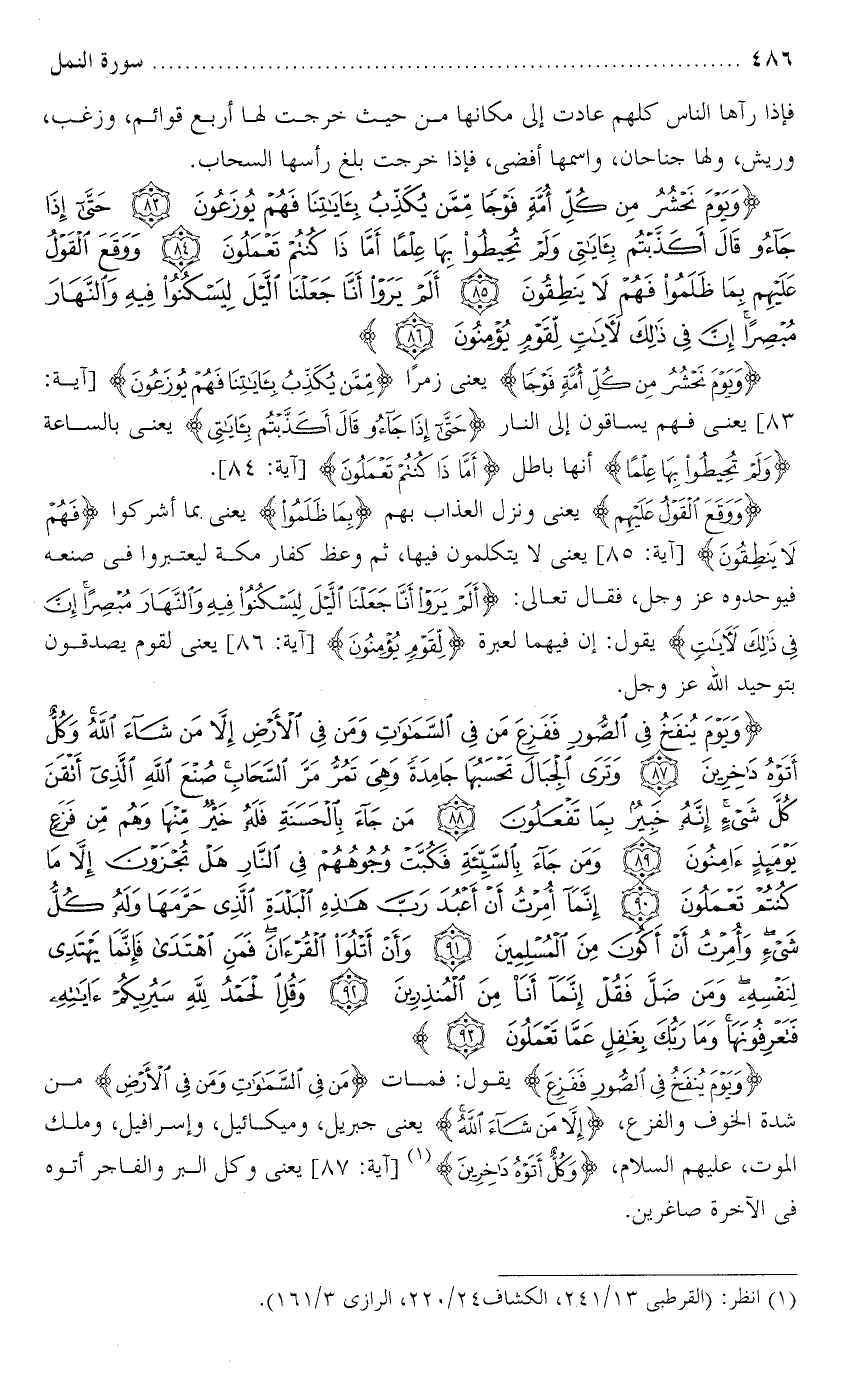 ٤٨٦ ........................................................................ سورة النمل
فإذا رآها الناس كلهم عادت إلى مكانها من حيث خرجت لها أربع قوائم، وزغب،
وريش، ولها جناحان، واسمها أفضى، فإذا خرجت بلغ رأسها السحاب.
﴿وَيَوْمَ نَحْشُرُ مِن كُلِّ أُمَّةٍ فَوْجًا مِّمَّن يُكَذِّبُ بِـَٔايَـٰتِنَا فَهُمْ يُوزَعُونَ ٨٣ حَتَّىٰٓ إِذَا
جَآءُو قَالَ أَكَذَّبْتُم بِـَٔايَـٰتِى وَلَمْ تُحِيطُوا۟ بِهَا عِلْمًا أَمَّا ذَا كُنتُمْ تَعْمَلُونَ ٨٤ وَوَقَعَ ٱلْقَوْلُ
عَلَيْهِم بِمَا ظَلَمُوا۟ فَهُمْ لَا يَنطِقُونَ ٨٥ أَلَمْ يَرَوْا۟ أَنَّا جَعَلْنَا ٱلَّيْلَ لِيَسْكُنُوا۟ فِيهِ وَٱلنَّهَارَ
مُبْصِرًا ۚ إِنَّ فِى ذَٰلِكَ لَـَٔايَـٰتٍ لِّقَوْمٍ يُؤْمِنُونَ ٨٦ ﴾
﴿وَيَوْمَ نَحْشُرُ مِن كُلِّ أُمَّةٍ فَوْجًا﴾ يعنى زمرًا ﴿مِّمَّن يُكَذِّبُ بِـَٔايَـٰتِنَا فَهُمْ يُوزَعُونَ﴾ [آية:
٨٣] يعنى فهم يساقون إلى النار ﴿حَتَّىٰٓ إِذَا جَآءُو قَالَ أَكَذَّبْتُم بِـَٔايَـٰتِى﴾ يعنى بالساعة
﴿وَلَمْ تُحِيطُوا۟ بِهَا عِلْمًا﴾ أنها باطل ﴿أَمَّا ذَا كُنتُمْ تَعْمَلُونَ﴾ [آية: ٨٤].
﴿وَوَقَعَ ٱلْقَوْلُ عَلَيْهِم﴾ يعنى ونزل العذاب بهم ﴿بِمَا ظَلَمُوا۟﴾ يعنى بما أشركوا ﴿فَهُمْ
لَا يَنطِقُونَ﴾ [آية: ٨٥] يعنى لا يتكلمون فيها، ثم وعظ كفار مكة ليعتبروا فى صنعه
فيوحدوه عز وجل، فقال تعالى: ﴿أَلَمْ يَرَوْا۟ أَنَّا جَعَلْنَا ٱلَّيْلَ لِيَسْكُنُوا۟ فِيهِ وَٱلنَّهَارَ مُبْصِرًا ۚ إِنَّ
فِى ذَٰلِكَ لَـَٔايَـٰتٍ﴾ يقول: إن فيهما لعبرة ﴿لِّقَوْمٍ يُؤْمِنُونَ﴾ [آية: ٨٦] يعنى لقوم يصدقون
بتوحيد الله عز وجل.
﴿وَيَوْمَ يُنفَخُ فِى ٱلصُّورِ فَفَزِعَ مَن فِى ٱلسَّمَـٰوَٰتِ وَمَن فِى ٱلْأَرْضِ إِلَّا مَن شَآءَ ٱللَّهُ ۚ وَكُلٌّ
أَتَوْهُ دَٰخِرِينَ ٨٧ وَتَرَى ٱلْجِبَالَ تَحْسَبُهَا جَامِدَةً وَهِىَ تَمُرُّ مَرَّ ٱلسَّحَابِ ۚ صُنْعَ ٱللَّهِ ٱلَّذِىٓ أَتْقَنَ
كُلَّ شَىْءٍ ۚ إِنَّهُۥ خَبِيرٌۢ بِمَا تَفْعَلُونَ ٨٨ مَن جَآءَ بِٱلْحَسَنَةِ فَلَهُۥ خَيْرٌ مِّنْهَا وَهُم مِّن فَزَعٍ
يَوْمَئِذٍ ءَامِنُونَ ٨٩ وَمَن جَآءَ بِٱلسَّيِّئَةِ فَكُبَّتْ وُجُوهُهُمْ فِى ٱلنَّارِ هَلْ تُجْزَوْنَ إِلَّا مَا
كُنتُمْ تَعْمَلُونَ ٩٠ إِنَّمَآ أُمِرْتُ أَنْ أَعْبُدَ رَبَّ هَـٰذِهِ ٱلْبَلْدَةِ ٱلَّذِى حَرَّمَهَا وَلَهُۥ كُلُّ
شَىْءٍ ۖ وَأُمِرْتُ أَنْ أَكُونَ مِنَ ٱلْمُسْلِمِينَ ٩١ وَأَنْ أَتْلُوَا۟ ٱلْقُرْءَانَ ۖ فَمَنِ ٱهْتَدَىٰ فَإِنَّمَا يَهْتَدِى
لِنَفْسِهِۦ ۖ وَمَن ضَلَّ فَقُلْ إِنَّمَآ أَنَا۠ مِنَ ٱلْمُنذِرِينَ ٩٢ وَقُلِ ٱلْحَمْدُ لِلَّهِ سَيُرِيكُمْ ءَايَـٰتِهِۦ
فَتَعْرِفُونَهَا ۚ وَمَا رَبُّكَ بِغَـٰفِلٍ عَمَّا تَعْمَلُونَ ٩٣ ﴾
﴿وَيَوْمَ يُنفَخُ فِى ٱلصُّورِ فَفَزِعَ﴾ يقول: فمات ﴿مَن فِى ٱلسَّمَـٰوَٰتِ وَمَن فِى ٱلْأَرْضِ﴾ من
شدة الخوف والفزع، ﴿إِلَّا مَن شَآءَ ٱللَّهُ ۚ﴾ يعنى جبريل، وميكائيل، وإسرافيل، وملك
الموت، عليهم السلام، ﴿وَكُلٌّ أَتَوْهُ دَٰخِرِينَ﴾(١) [آية: ٨٧] يعنى وكل البر والفاجر أتوه
فى الآخرة صاغرين.
(١) انظر: (القرطبى ٢٤١/١٣، الكشاف٢٢٠/٢٤، الرازى ١٦١/٣).